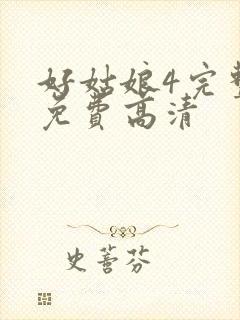 好姑娘4完整
免費高清
史蕾芬